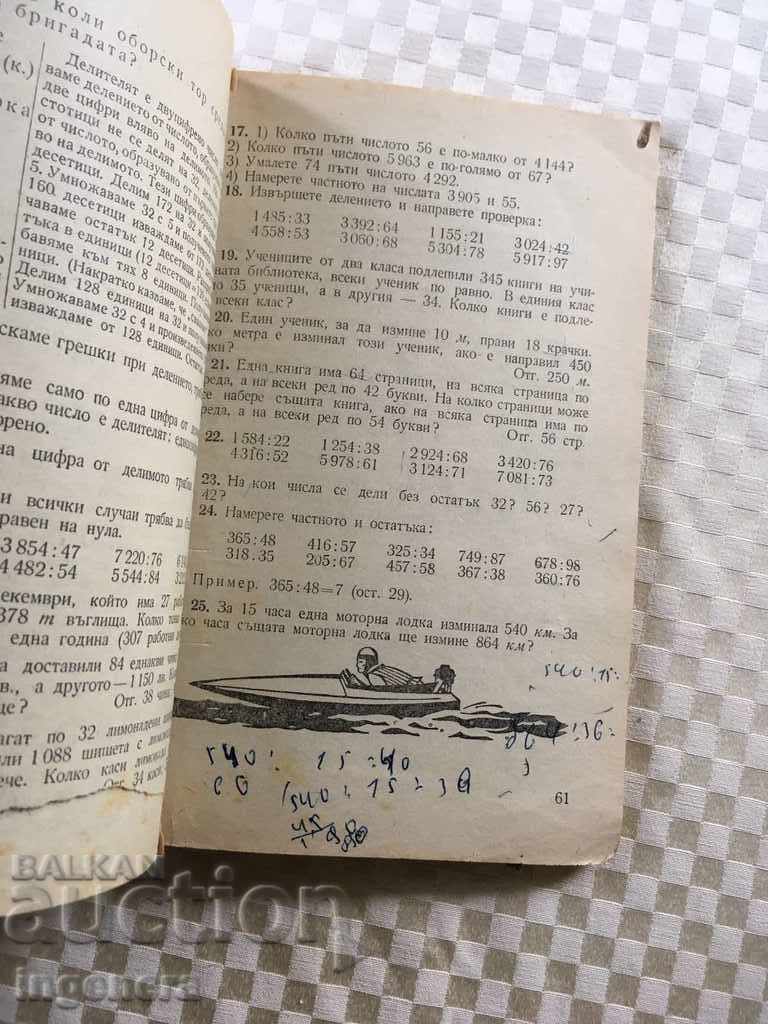 коли оборски тор
бригадата?
(к.)
Делителят е двуцифрено
ваме делението от числото
две цифри вляво на делимото
стотици не се делят на 32
от числото, образувано от първите
во на делимото. Тези цифри
десетици. Делим 172 на 32 и
5. Умножаваме 32 с 5 и
160 десетици изваждаме от 172
чаваме остатък 12 десетици.
тъка в единици (12 десетици =
бавяме към тях 8 единици.
ници. (Накратко казваме, че
Делим 128 единици на 32 и
Умножаваме 32 с 4 и произведението
изваждаме от 128 единици.
скаме грешки при делението,
яме само по една цифра от
акво число е делителят;
орено.
на цифра от делимото трябва
и всички случаи трябва да
равен на нула.
3 854 : 47 7 220 : 76
4 482 : 54 5 544 : 84
екември, който има 27
378 т въглища. Колко
една година (307 работни
а доставили 84 еднакви
в., а другото — 1 150 лв.
це? Отг. 38
агат по 32 лимонадени
или 1 088 шишета с
ече. Колко каси
Отг. 34 каси
17. 1) Колко пъти числото 56 е по-малко от 4 144?
2) Колко пъти числото 5 963 е по-голямо от 67?
3) Умалете 74 пъти числото 4 292.
4) Намерете частното на числата 3 905 и 55.
18. Извършете делението и направете проверка:
1 485 : 33 3 392 : 64 1 155 : 21 3 024 : 42
4 558 : 53 3 060 : 68 5 304 : 78 5 917 : 97
19. Учениците от два класа подлепили 345 книги на учи-
ната библиотека, всеки ученик по равно. В единия клас
о 35 ученици, а в другия — 34. Колко книги е подле-
всеки клас?
20. Един ученик, за да измине 10 м, прави 18 крачки.
ко метра е изминал този ученик, ако е направил 450
ки? Отг. 250 м.
21. Една книга има 64 страници, на всяка страница по
реда, а на всеки ред по 42 букви. На колко страници може
се набере същата книга, ако на всяка страница има по
реда, а на всеки ред по 54 букви? Отг. 56 стр.
22. 1 584 : 22 1 254 : 38 2 924 : 68 3 420 : 76
4 316 : 52 5 978 : 61 3 124 : 71 7 081 : 73
23. На кои числа се дели без остатък 32? 56? 27?
42?
24. Намерете частното и остатъка:
365 : 48 416 : 57 325 : 34 749 : 87 678 : 98
318 . 35 205 : 67 457 : 58 367 : 38 360 : 76
Пример. 365 : 48 = 7 (ост. 29).
25. За 15 часа една моторна лодка изминала 540 км. За
ко часа същата моторна лодка ще измине 864 км?
540 : 15 =
864 : 36 =
540 : 15 = 40
60 540 : 15 = 36
45
61
BALKAN
auction
ingenera